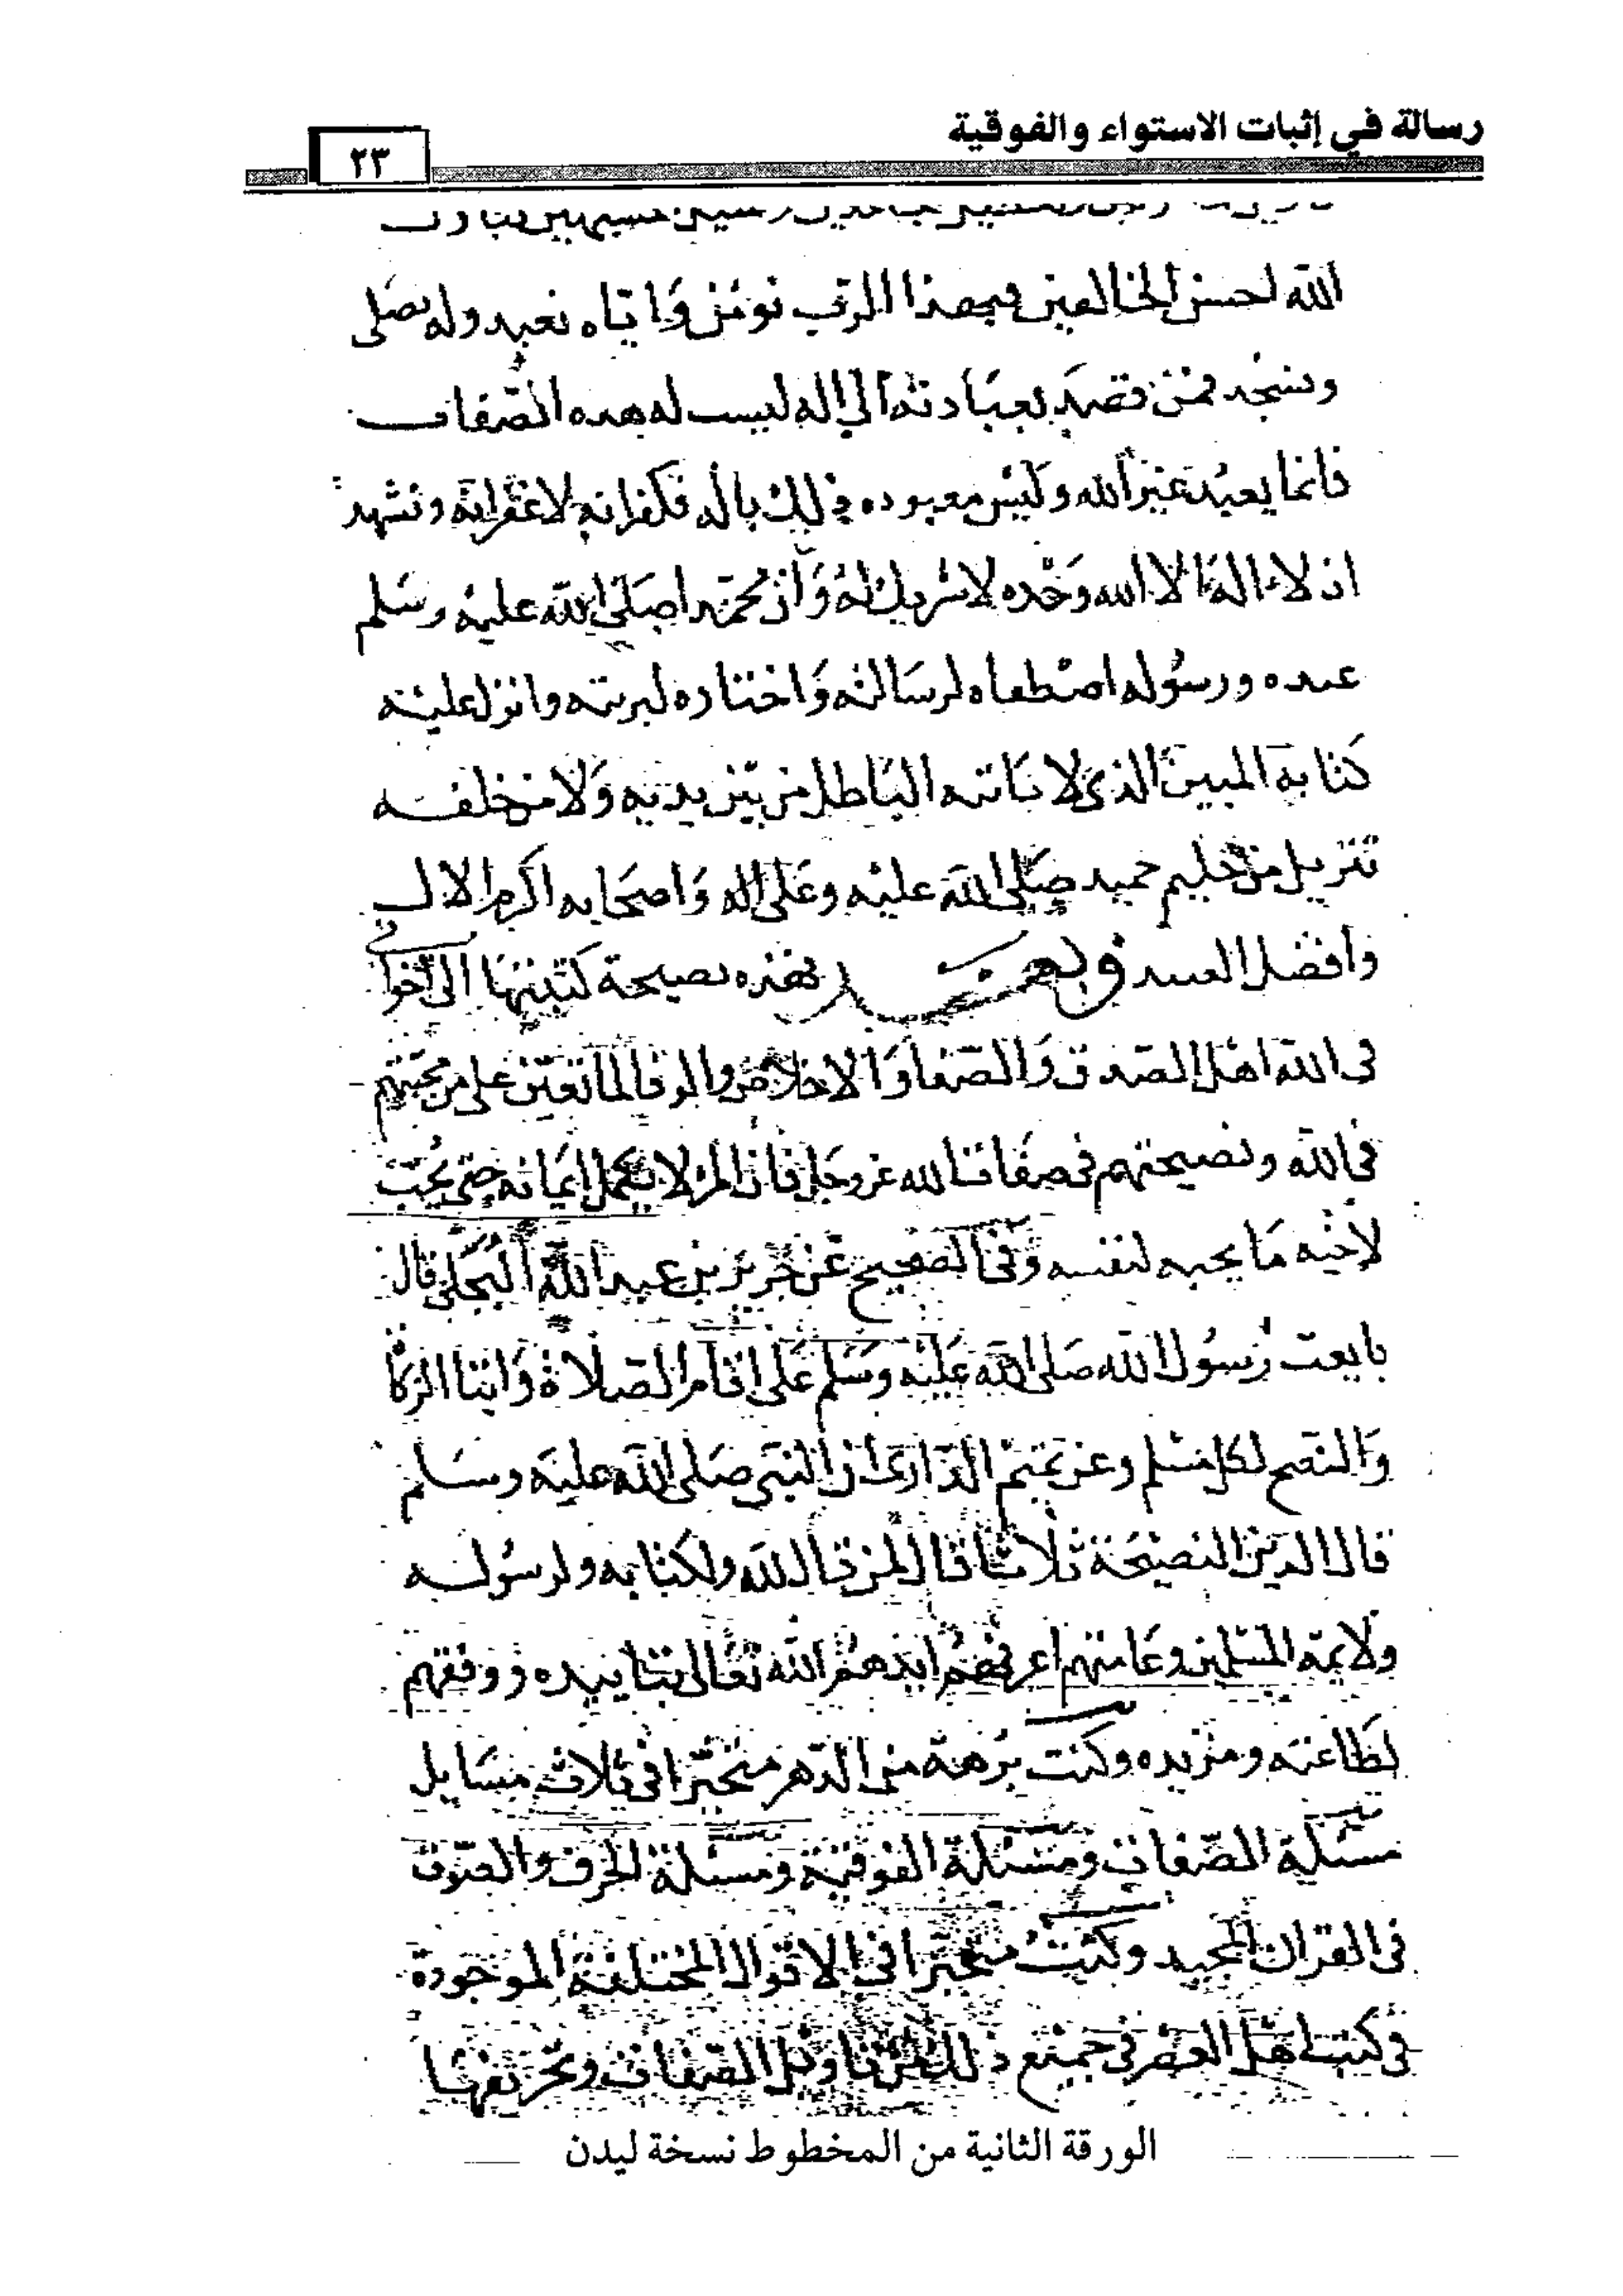 رسالة في إثبات الاستواء والفوقية
٢٣
الله احسن الخالقين فبهذا الرب نومن واياه نعبد وله نصلى
ونسجد فمن قصد بعبادته الى اله ليست له هذه الصفات
فانما يعبد غير الله وليس معبوده ذلك باله فكفرانه لا غفرانه ونشهد
ان لا اله الا الله وحده لا شريك له وان محمدا صلى الله عليه وسلم
عبده ورسوله اصطفاه لرسالته واختاره لبريته وانزل عليه
كتابه المبين الذى لا ياتيه الباطل من بين يديه ولا من خلفه
تنزيل من حكيم حميد صلى الله عليه وعلى اله واصحابه اكرم الال
وافضل العبيد وبعد فهذه نصيحة كتبتها الى اخوانى
فى الله اهل الصدق والصفا والاخلاص والوفا لما تعين على من محبتهم
فى الله ونصيحتهم فى صفات الله عز وجل فان المرء لا يكمل ايمانه حتى يحب
لاخيه ما يحبه لنفسه وفى الصحيح عن جرير بن عبد الله البجلى قال
بايعت رسول الله صلى الله عليه وسلم على اقام الصلاة وايتا الزكاة
والنصح لكل مسلم وعن تميم الدارى ان النبى صلى الله عليه وسلم
قال الدين النصيحة ثلاثا قال لمن قال لله ولكتابه ولرسوله
ولايمة المسلمين وعامتهم اعرفهم ايدهم الله تعالى بتاييده ووفقهم
لطاعته ومزيده وكنت برهة من الدهر متحيرا فى ثلاث مسايل
مسئلة الصفات ومسئلة الفوقية ومسئلة الحرف والصوت
فى القران المجيد وكنت متحيرا فى الاقوال المختلفة الموجودة
فى كتب اهل العصر فى جميع ذلك من تاويل الصفات وتحريفها
الورقة الثانية من المخطوط نسخة ليدن